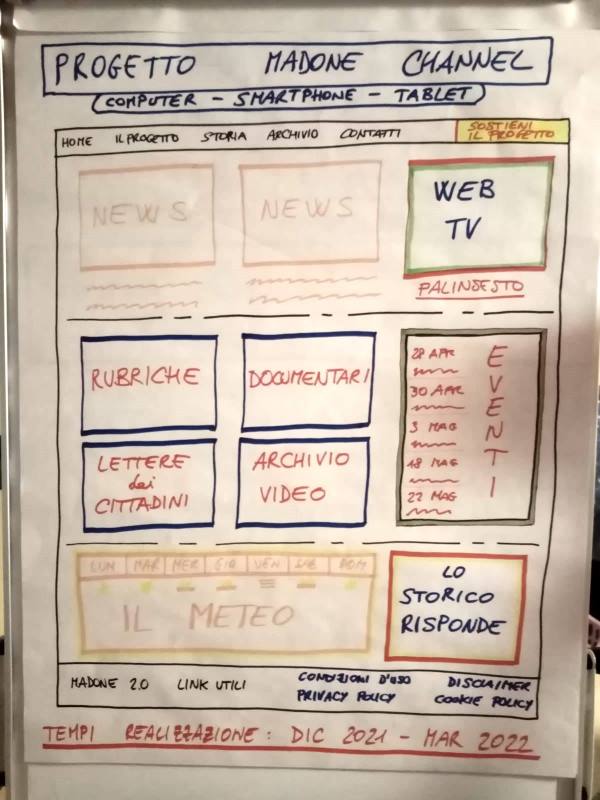 PROGETTO MADONE CHANNEL
(COMPUTER - SMARTPHONE - TABLET)
HOME IL PROGETTO STORIA ARCHIVIO CONTATTI
SOSTIENI
IL PROGETTO
NEWS
NEWS
WEB
TV
PALINSESTO
RUBRICHE
DOCUMENTARI
LETTERE
dei
CITTADINI
ARCHIVIO
VIDEO
28 APR
30 APR
3 MAG
18 MAG
22 MAG
EVENTI
LUN MAR MER GIO VEN SAB DOM
IL METEO
LO
STORICO
RISPONDE
MADONE 2.0 LINK UTILI
CONDIZIONI D'USO
PRIVACY POLICY
DISCLAIMER
COOKIE POLICY
TEMPI REALIZZAZIONE: DIC 2021 - MAR 2022